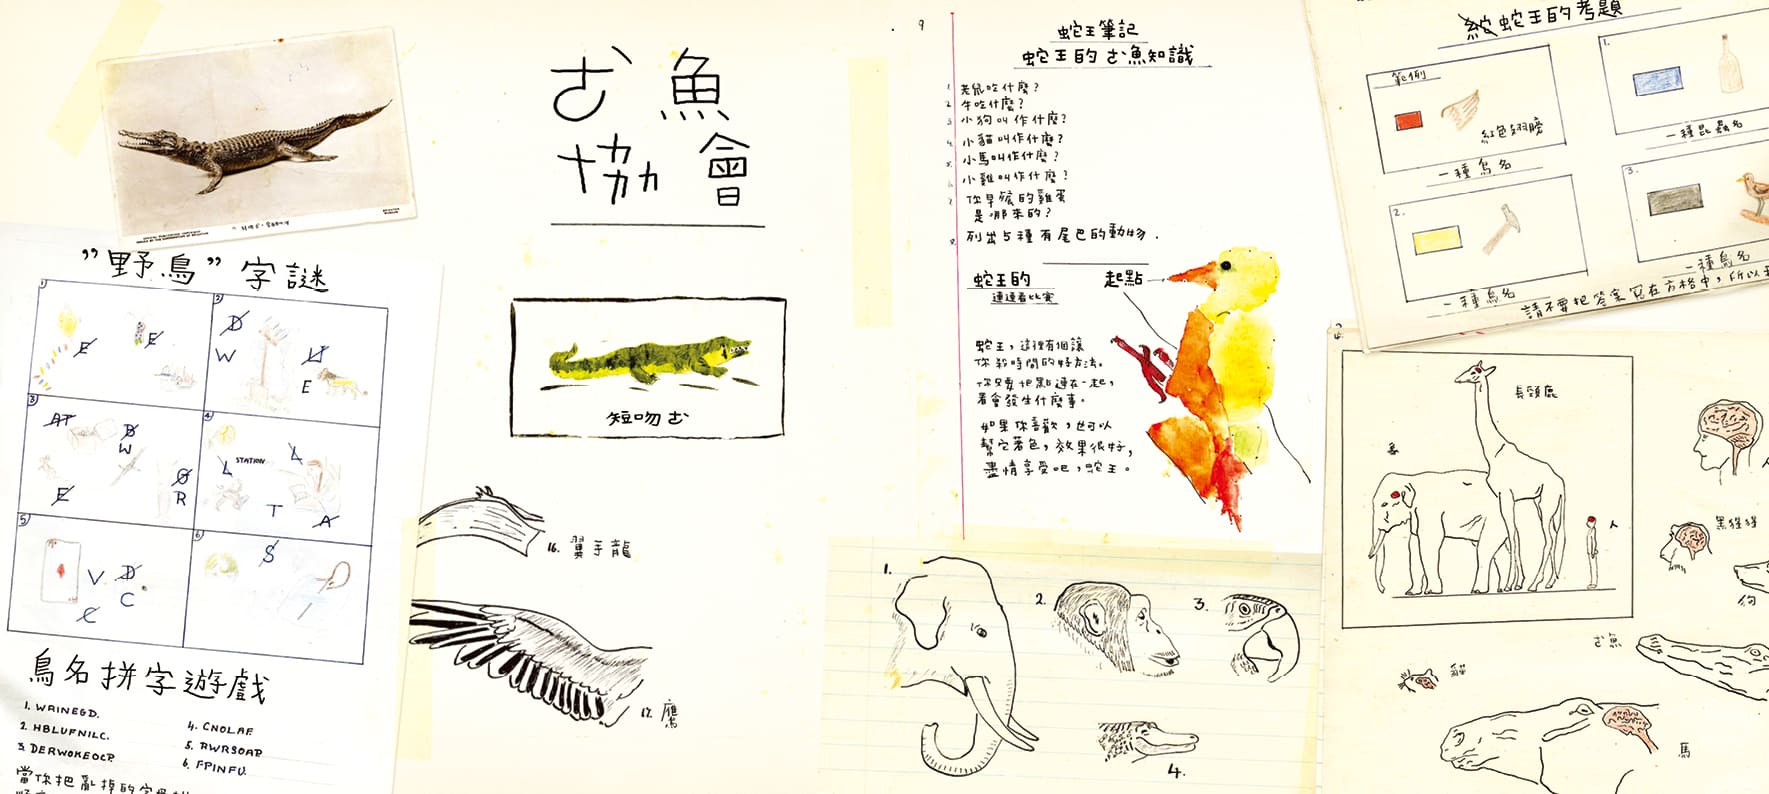 古魚
協會
"野鳥"字謎
1
E
E
2
D
W
U
E
3
AT
B
W
E
O
R
4
L
STATION
L
T
A
5
V
D
C
C
6
S
鳥名拼字遊戲
1. WAINEGD.
2. HBLUFNILC.
3. DERWOKEOCP
4. CNOLAF
5. RWRSOAP
6. FPINFU.
短吻古
16. 翼手龍
17. 鷹
9
蛇王筆記
蛇王的古魚知識
1. 老鼠吃什麼?
2. 牛吃什麼?
3. 小狗叫作什麼?
4. 小貓叫作什麼?
5. 小馬叫作什麼?
6. 小雞叫作什麼?
7. 你早餐的雞蛋
是哪來的?
8. 列出5種有尾巴的動物.
蛇王的
連連看比賽
起點
蛇王,這裡有個讓
你殺時間的好方法。
你只要把點連在一起,
看會發生什麼事。
如果你喜歡,也可以
幫它著色,效果很好,
盡情享受吧,蛇王。
1.
2.
3.
4.
蛇王的考題
範例
紅色翅膀
一種鳥名
1.
一種昆蟲名
2.
一種鳥名
3.
一種鳥名
請不要把答案寫在方格中,所以
長頸鹿
象
人
黑猩猩
狗
古魚
貓
馬